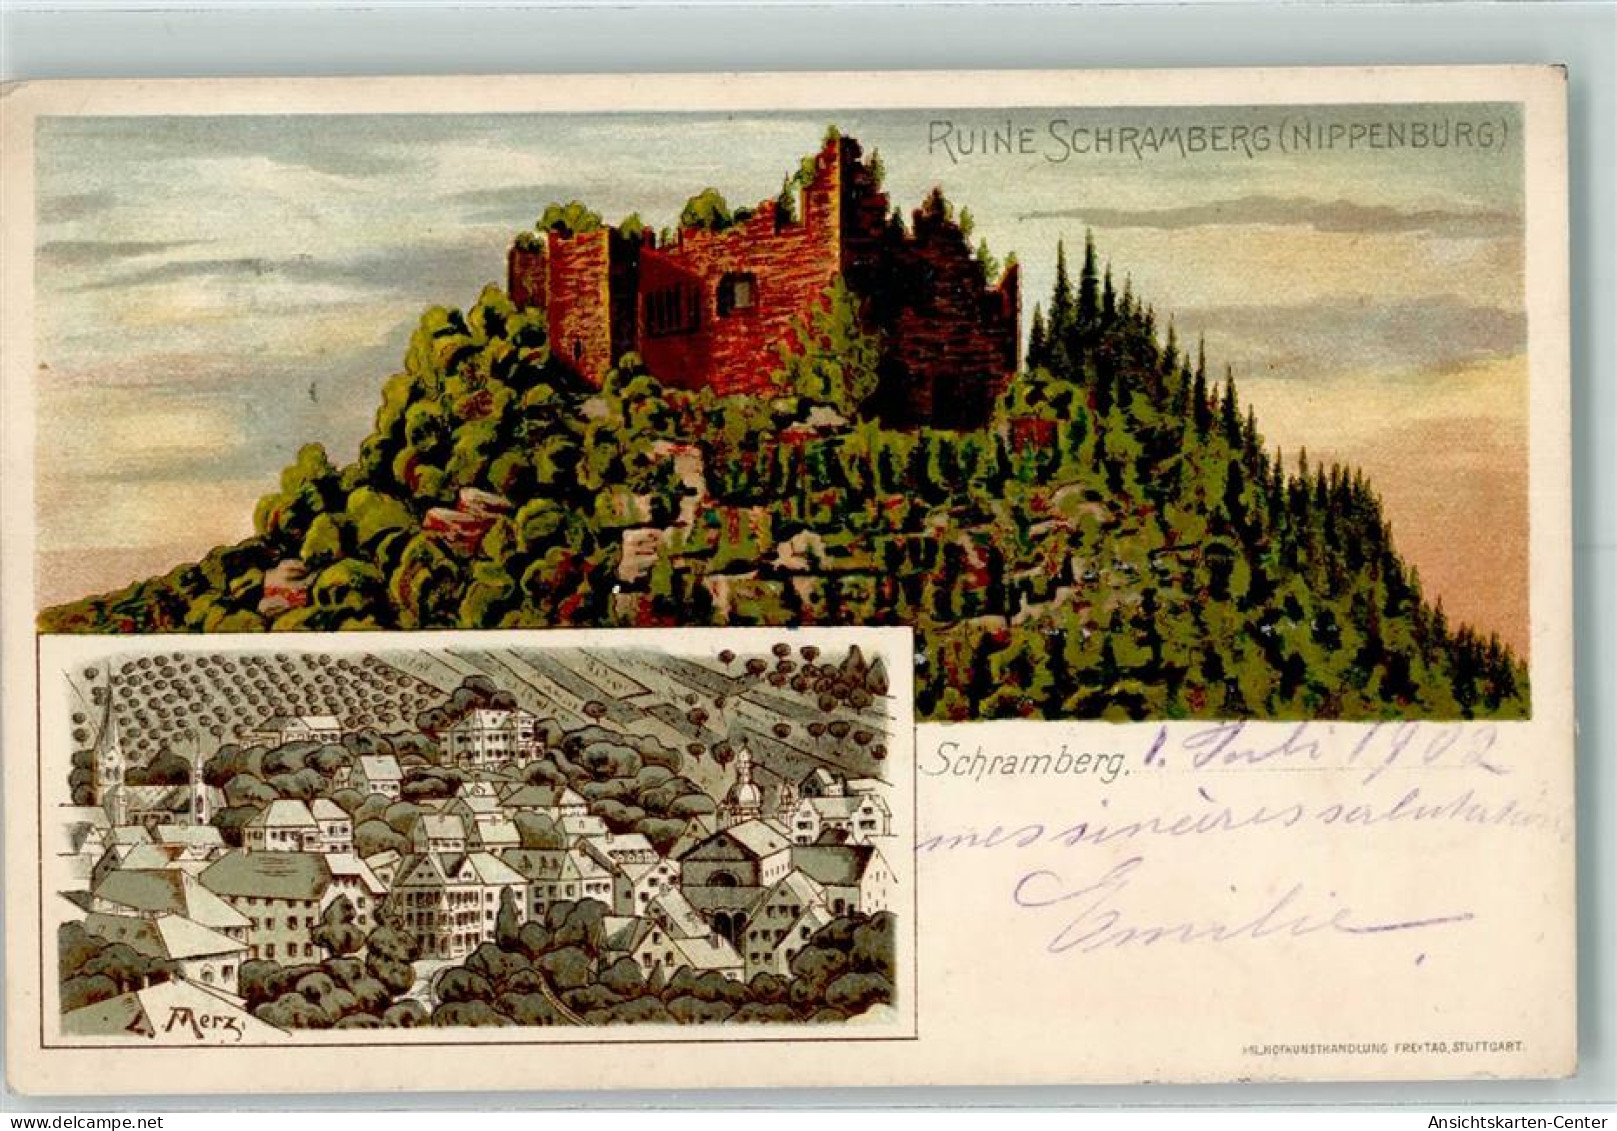 RUINE SCHRAMBERG (NIPPENBURG)
Schramberg, 1. Juli 1902
mes sincères salutations
Emilie.
L. Merz.
HOFKUNSTHANDLUNG FREYTAG, STUTTGART.
Ansichtskarten-Center